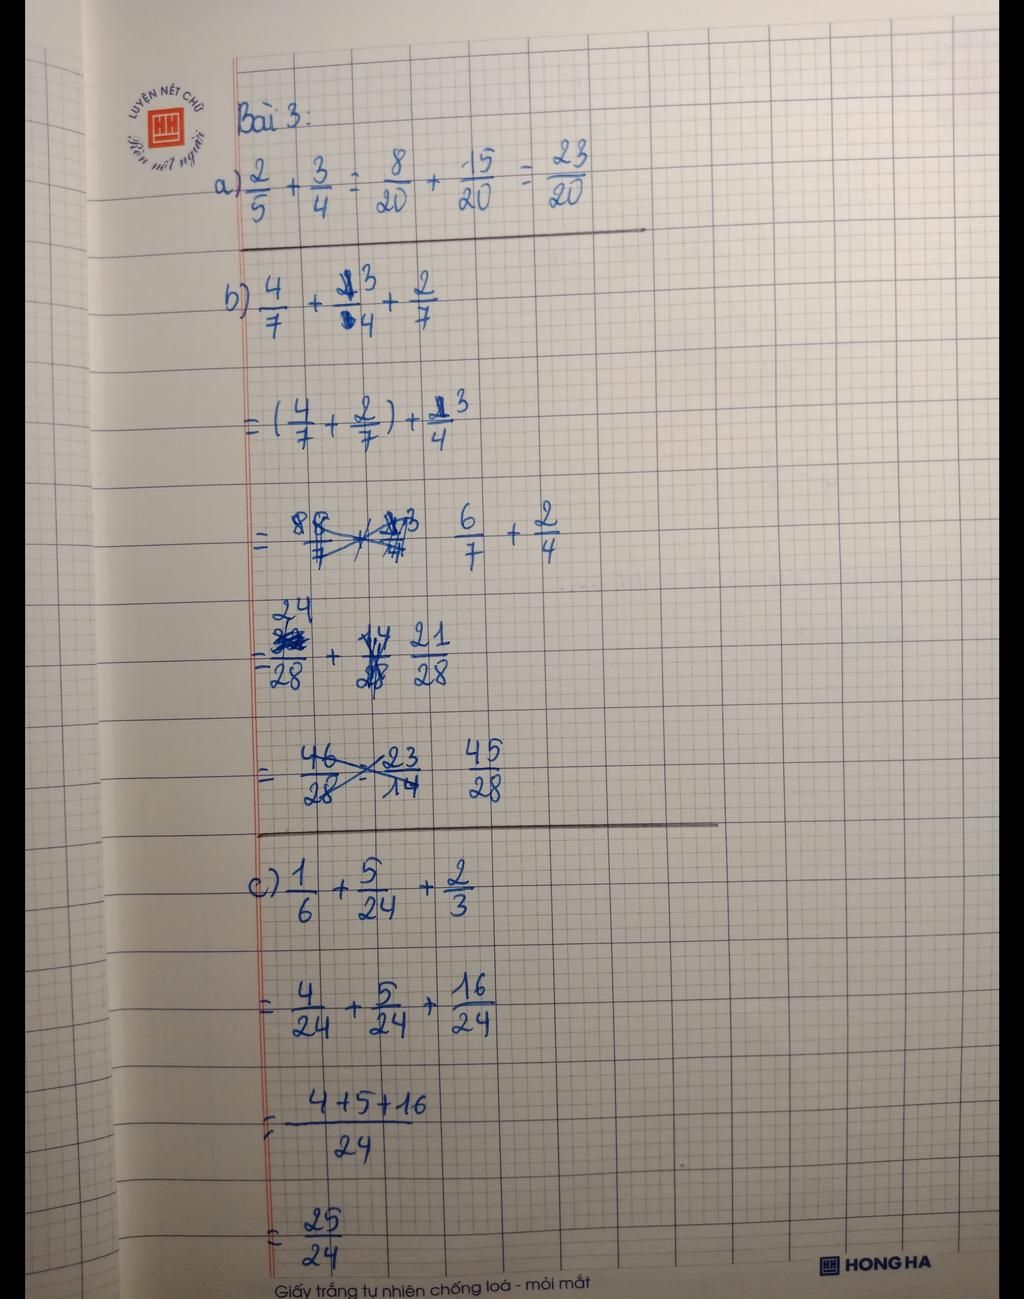 LUYỆN NÉT CHỮ
HH
Rèn nết người
Bài 3:
a) 2/5 + 3/4 = 8/20 + 15/20 = 23/20
b) 4/7 + 3/4 + 2/7
= (4/7 + 2/7) + 3/4
= 6/7 + 2/4
= 24/28 + 21/28
= 46/28 = 23/14 45/28
c) 1/6 + 5/24 + 2/3
= 4/24 + 5/24 + 16/24
= 4+5+16/24
= 25/24
HH HONG HA
Giấy trắng tự nhiên chống loá - mỏi mắt